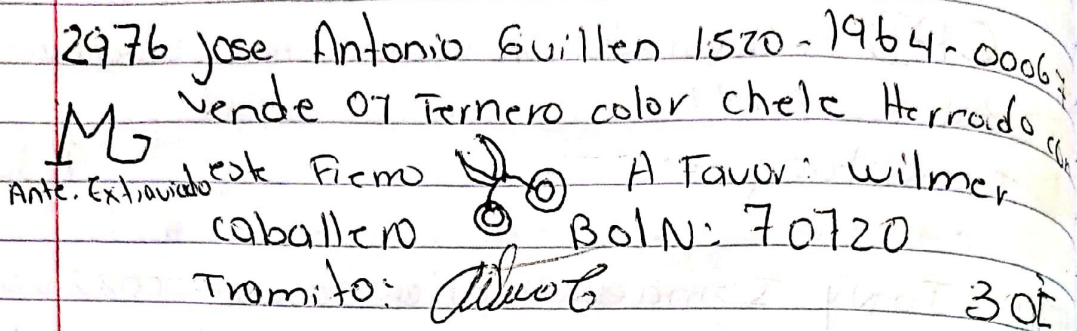 2976 Jose Antonio Guillen 1520-1964-0006
vende 01 Ternero color chele Herrado con
Ante. Extraviado este Fierro A Favor: wilmer
caballero BolN: 70720
Tramito: